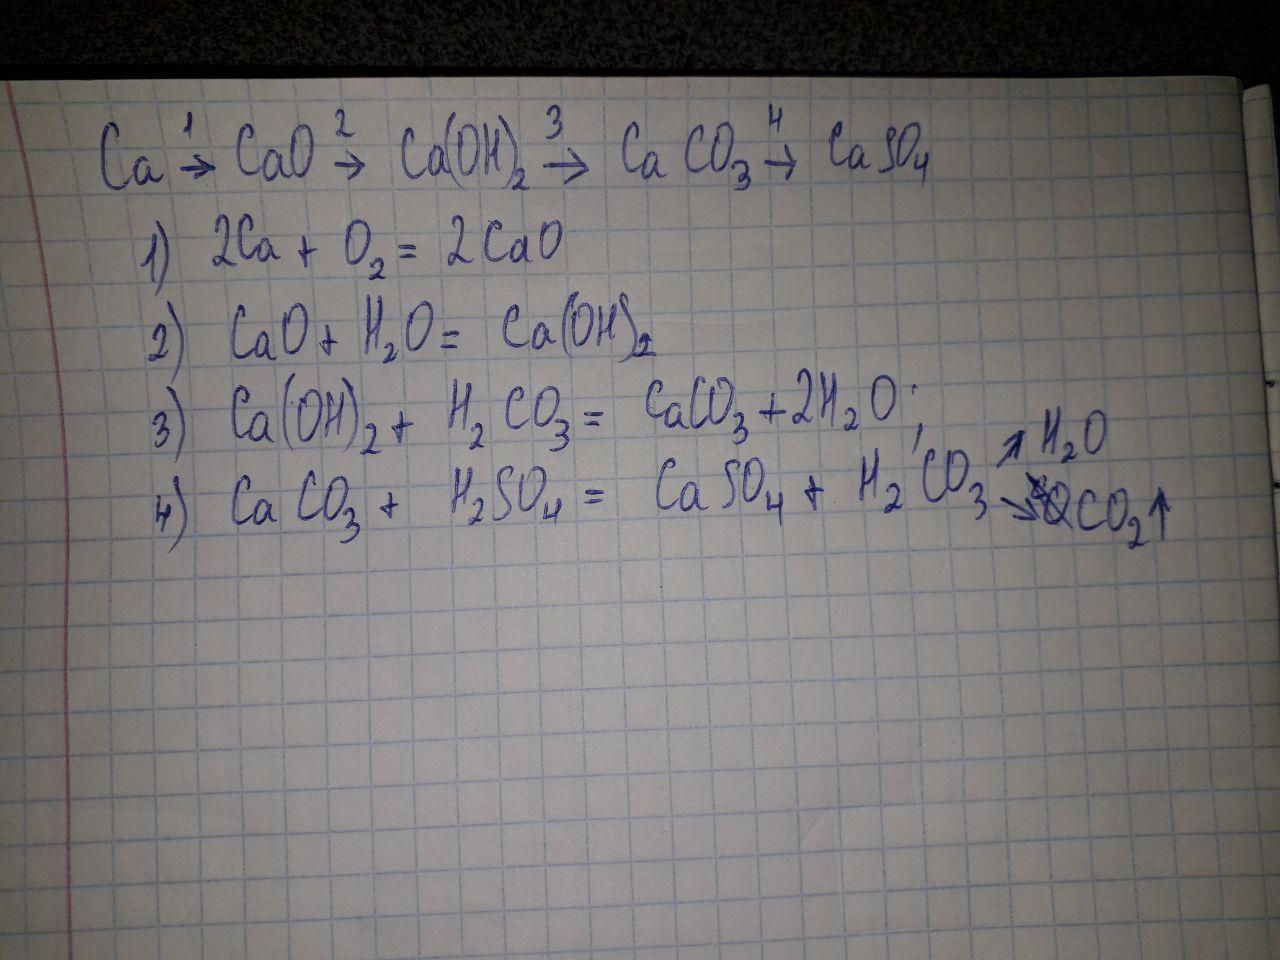 Ca →¹ CaO →² Ca(OH)₂ →³ CaCO₃ →⁴ CaSO₄
1) 2Ca + O₂ = 2CaO
2) CaO + H₂O = Ca(OH)₂
3) Ca(OH)₂ + H₂CO₃ = CaCO₃ + 2H₂O;
4) CaCO₃ + H₂SO₄ = CaSO₄ + H₂CO₃ ↗ H₂O
↘ CO₂↑